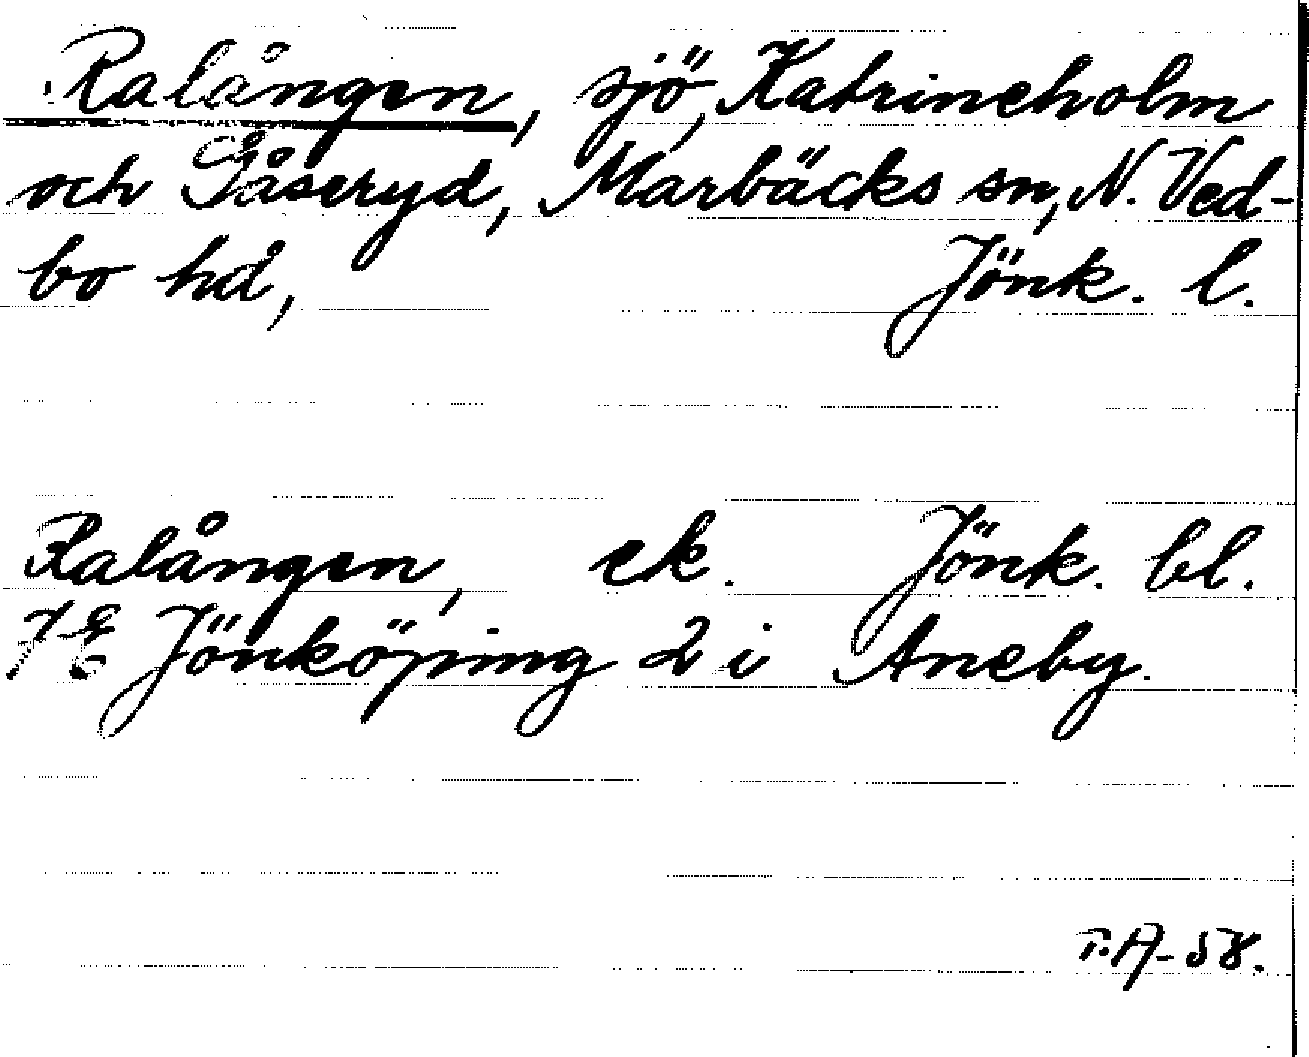 Ralången, sjö, Katrineholm
och Gåseryd, Marbäcks sn, N. Ved-
bo hd, Jönk. l.
Ralången, ek. Jönk. bl.
7E Jönköping 2 i Aneby.
T.A-58.